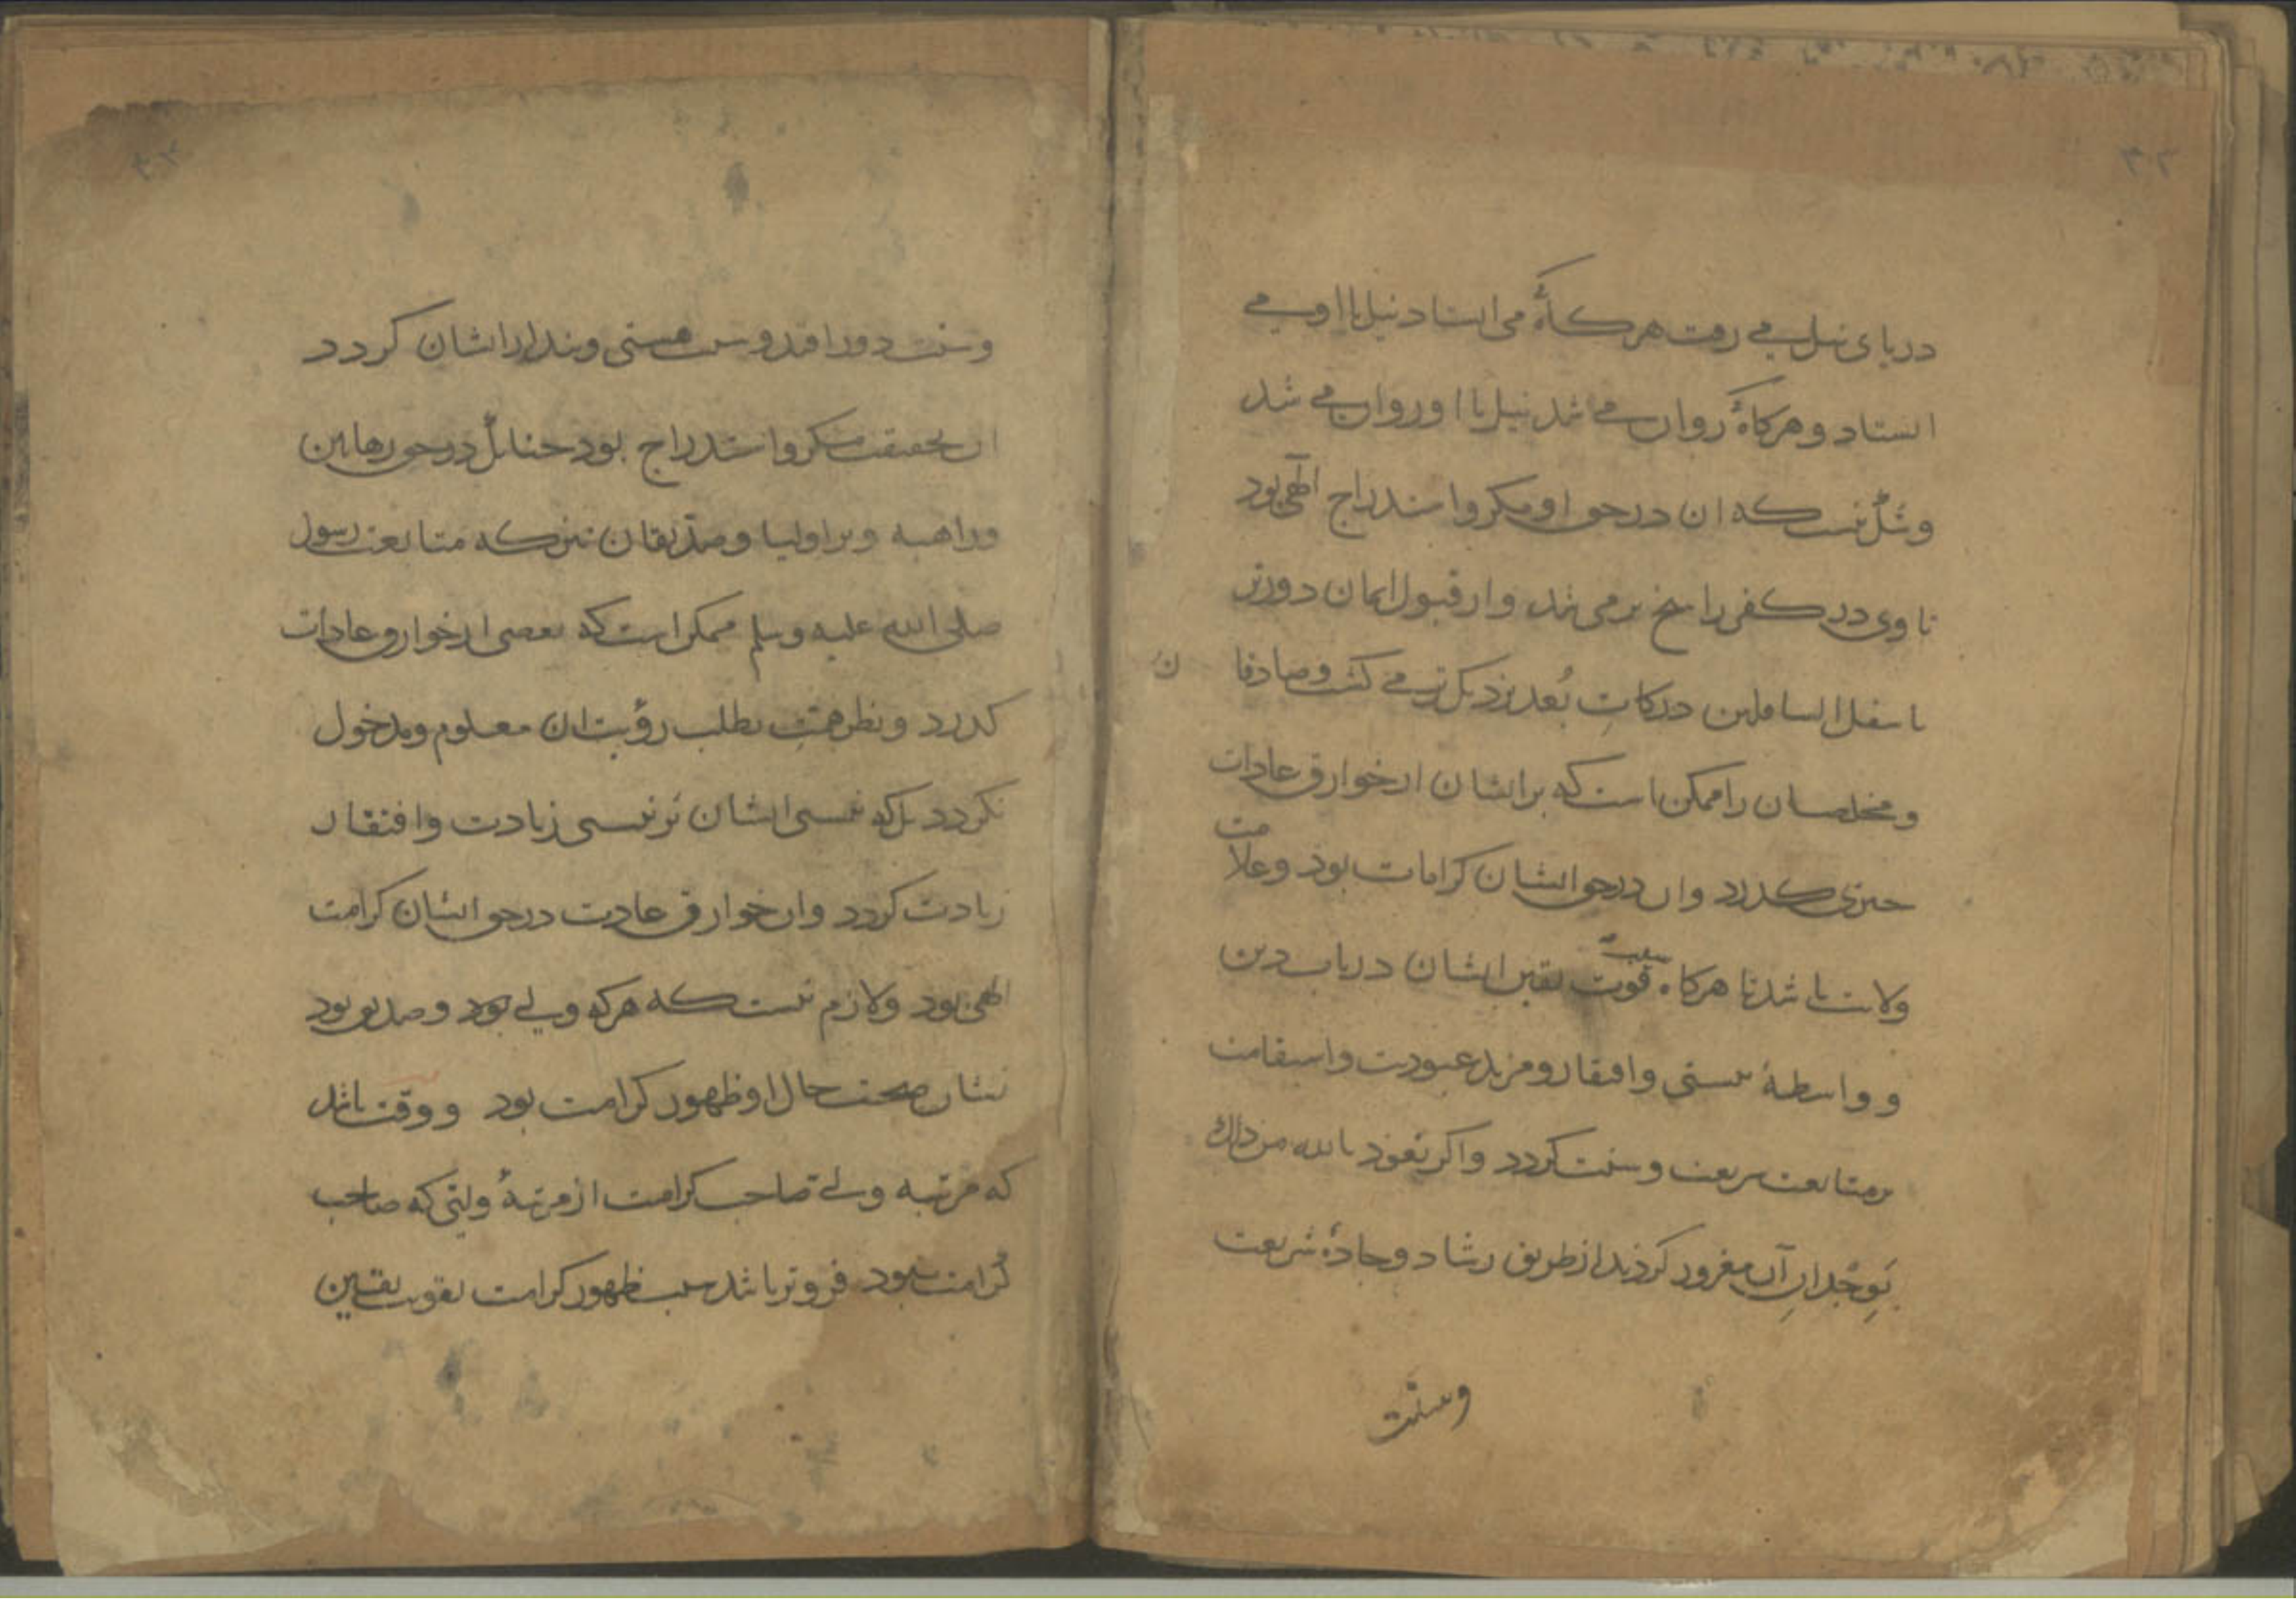 دریای نیل می رفت هرکاهٔ می استاد نیل با او می
استاد و هرکاهٔ روان می شد نیل با او روان می شد
و شک نیست که ان در حق او مکر و استدراج الهی بود
تا وی در کفر راسخ تر می شد و از قبول ایمان دورتر
باسفل السافلین درکاتِ بُعد نزدیک تر می کشت و صادقا ن
و مخلصان را ممکن است که بر ایشان از خوارق عادات
چیزی کذرد و ان در حق ایشان کرامات بود و علامت
ولایت باشد تا هرکاه سبب قوت یقین ایشان در باب دین
و واسطهٔ نیستی و افتقار و مزید عبودیت و استقامت
بر متابعت شریعت و سنت کردد و اکر نعوذ بالله من ذلك
بَوِجْدانِ آن مغرور کردند از طریق رشاد و جادهٔ شریعت
وسنت
وسنت دور افتد و سبب هستی و پندار ایشان کردد
ان بحقیقت مکر و استدراج بود چنانک در حق رهابین
و براهمه و بر اولیا و صدیقان نیز که متابعت رسول
صلی الله علیه وسلم ممکن است که بعضی از خوارق عادات
کذرد و نظر همت بطلب رؤیت ان معلوم و مدخول
نکردد بل که نیستی ایشان بر نیستی زیادت و افتقار
زیادت کردد و ان خوارق عادت در حق ایشان کرامت
الهی بود و لازم نیست که هرکه ولی بود و صدیق بود
نشان صحت حال او ظهور کرامت بود و وقت باشد
که مرتبه ولی صاحب کرامت از مرتبهٔ ولیّی که صاحب
کرامت نبود فروتر باشد سبب ظهور کرامت تقویت یقین